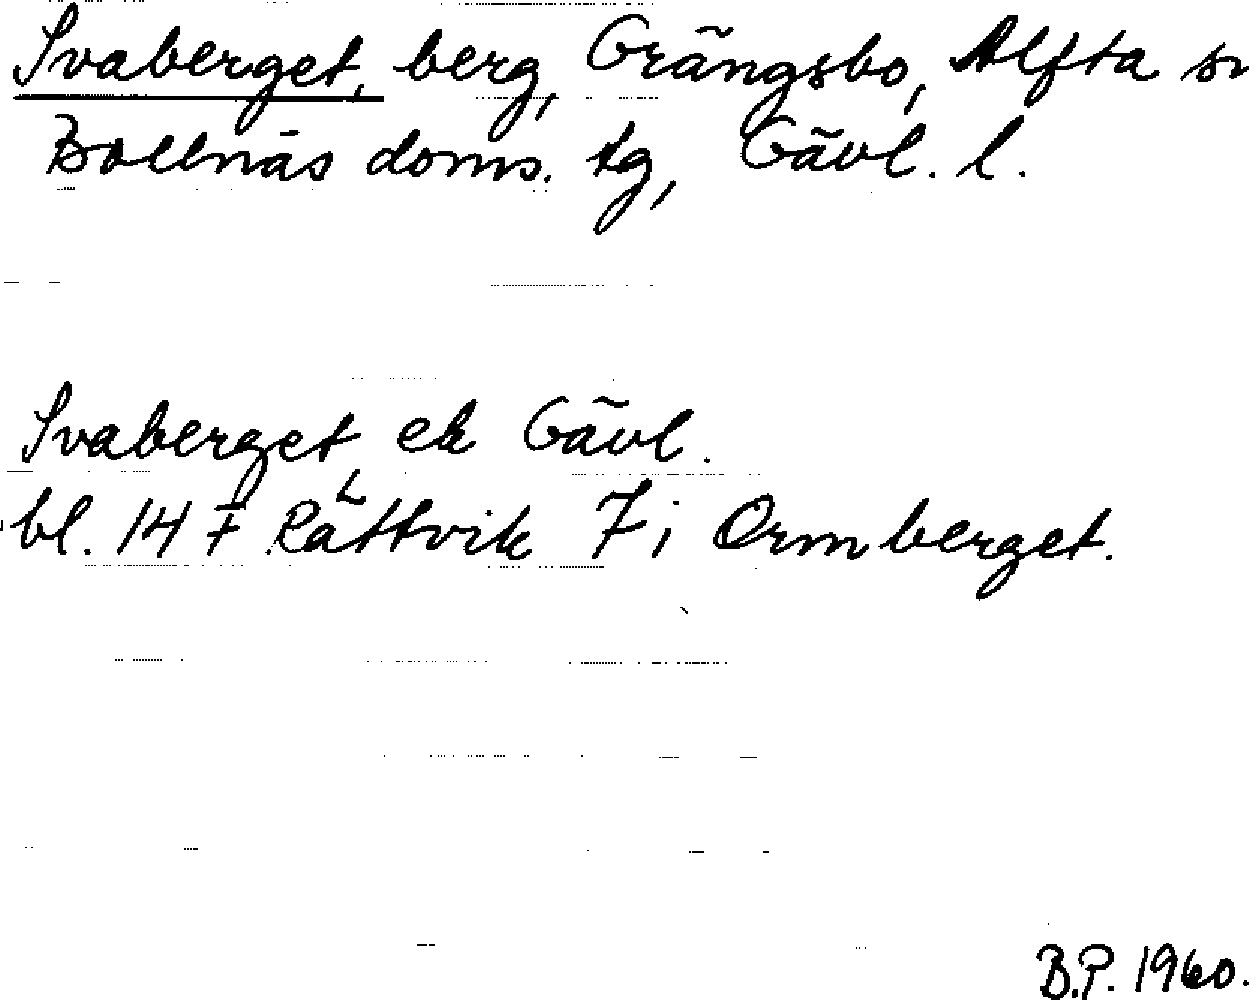 Svaberget, berg, Grängsbo, Alfta sn
Bollnäs doms. tg, Gävl. l.
Svaberget ek Gävl.
bl. 14 F Rättvik 7 i Ormberget.
B.P. 1960.